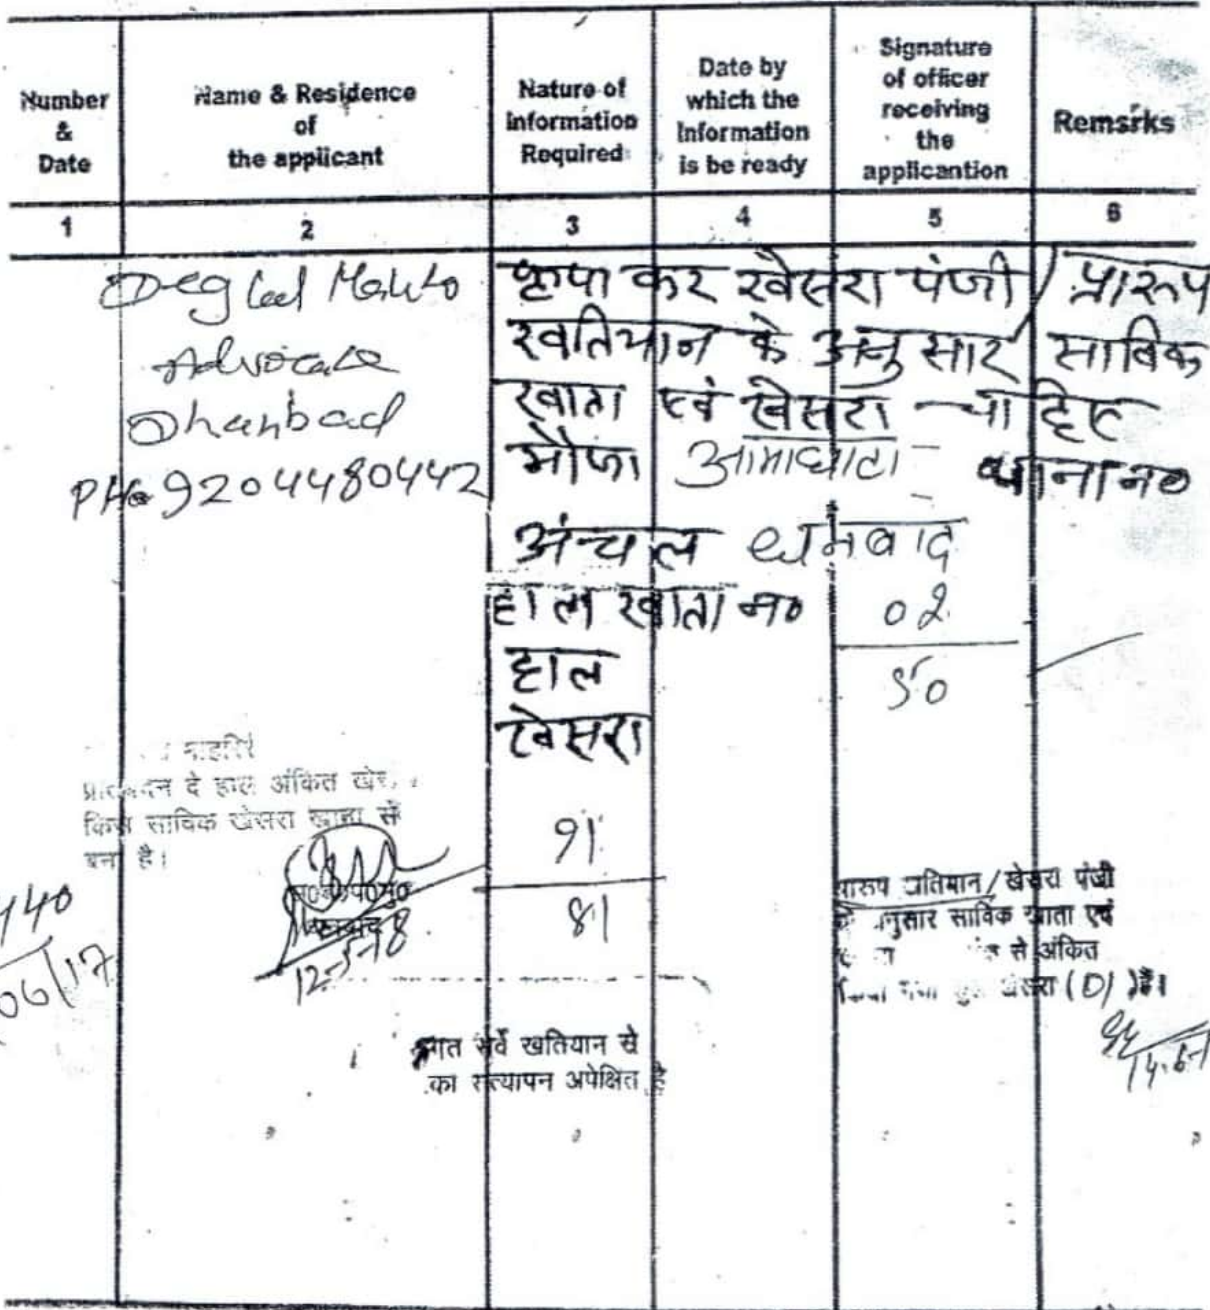 Number & Date
Name & Residence of the applicant
Nature of Information Required
Date by which the Information is be ready
Signature of officer receiving the applicantion
Remsrks
1 2 3 4 5 6
Advocate
Dhanbad
9204480442
कृपा कर खेसरा पंजी / प्रारूप
खतियान के अनुसार साविक
खाता एवं खेसरा चाहिए
मौजा आमाघाटा थाना न०
अंचल धनबाद
हाल खाता न० 02
50
हाल
खेसरा
91
81
दे हाल अंकित
किस साविक खेसरा खाता से
बना है।
140
06/17
12-5-18
खतियान / खेसरा पंजी
अनुसार साविक खाता एवं
से अंकित
(D) है।
सर्वे खतियान से
का सत्यापन अपेक्षित है